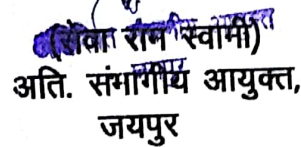 (सेवा राम स्वामी)
अति. संभागीय आयुक्त,
जयपुर